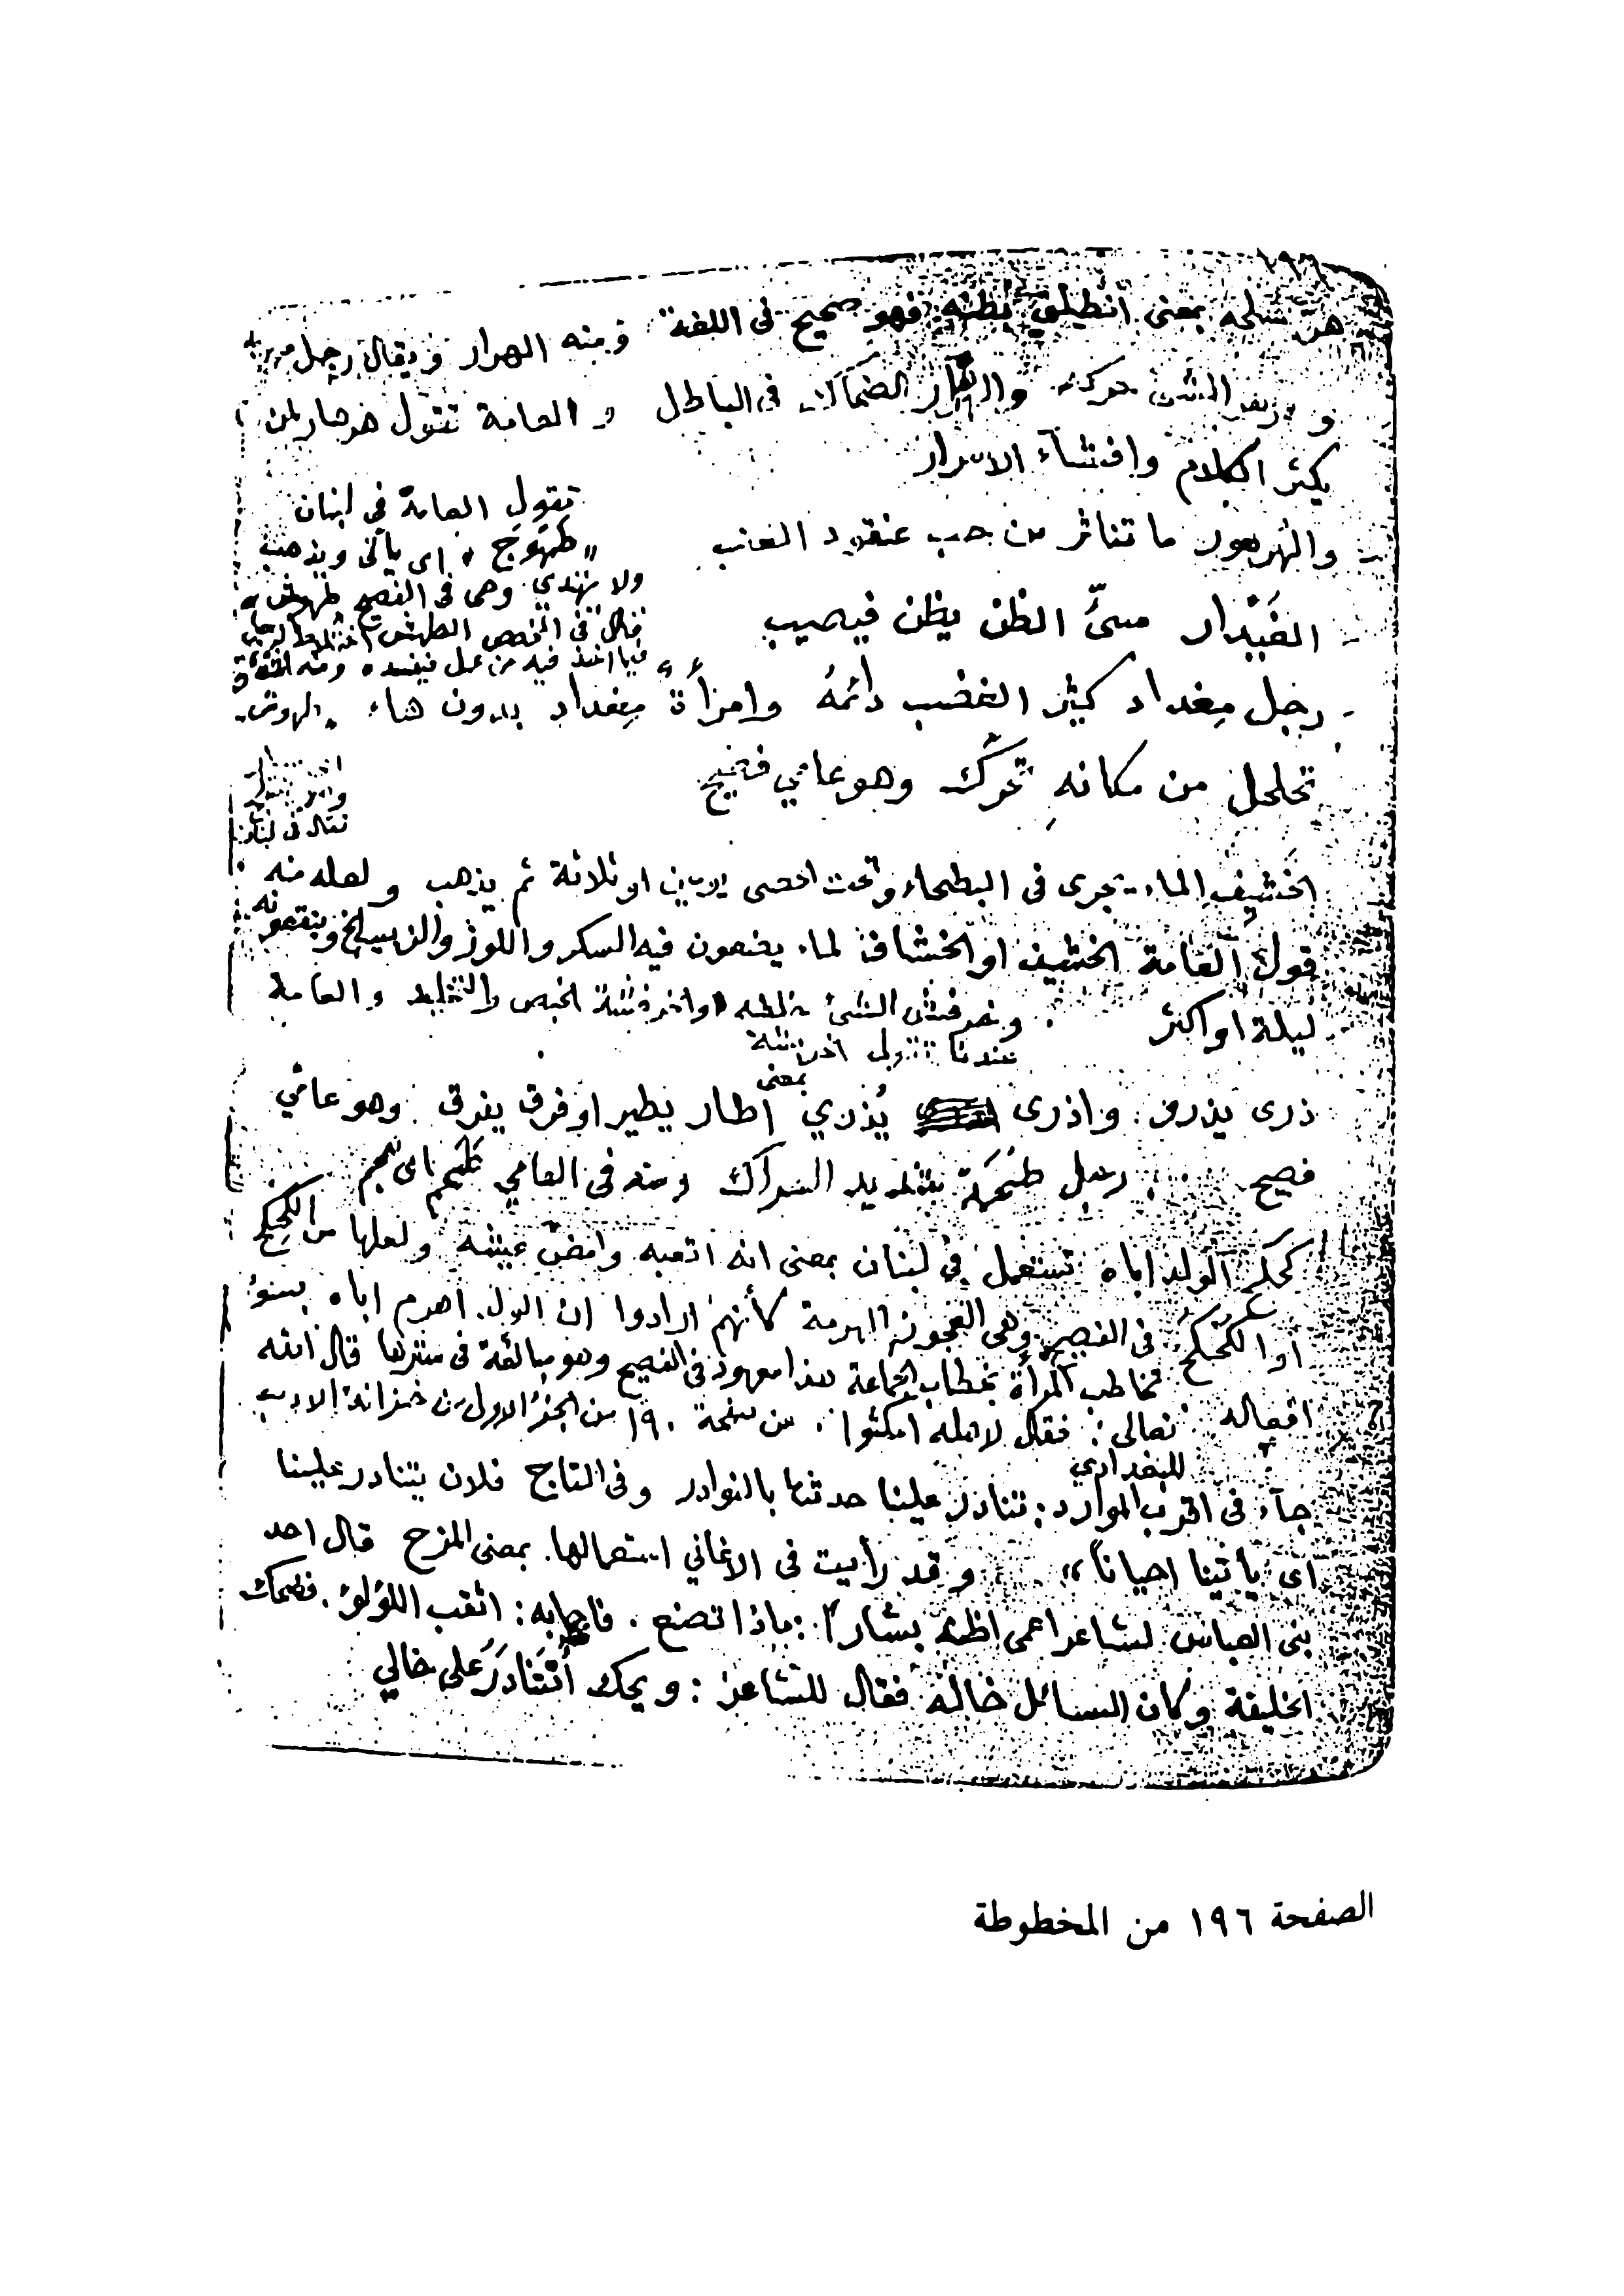 ١٩٦
هرّ سلحه بمعنى انطلق بطنه فهو صحيح في اللغة ومنه الهرار ويقال رجل
وهرهر الشئ حركه والهرار الضحاك في الباطل و العامة تقول هرهار لمن
يكثر الكلام وافشاء الاسرار
والهرهور ما تناثر من حب عنقود العنب
تقول العامة في لبنان
" طهوج " اى يأتى ويذهب
ولا يهتدي وهى في الفصيح
قال في المخصص الطهش اختلاط الرجل
فيما اخذ فيه من عمل فيفسده ومنه اشتقاق
- الغَيْدار سئّ الظن يظن فيصيب
- رجل مِغداد كثير الغضب دائمهُ وامرأة مِغداد بدون هاء
تحلحل من مكانهِ تحرّك وهو عامي فصيح
نقال في لبنان
الخشيف الماء يجرى في البطحاء وتحت الحصى يومين او ثلاثة ثم يذهب ولعله منه
قول العامة الخشيف او الخشاف لماء يضعون فيه السكر واللوز والزبيب وينقعونه
ليلة او اكثر
وخرفش الشئ خلطه او اخرفشة الخبص والتخليط والعامة
عندنا تقول
ذرى يذرو واذرى يُذري بمعنى اطار يطير او فرق يفرق وهو عامي
فصيح رجل طُحَمَة شديد العراك ومنه في العامي
كحكح الولد اباه تستعمل في لبنان بمعنى انه اتعبه وامضّ عيشه ولعلها من الكِحكِح
او الكُحكُح في الفصيح وهى العجوز الهرمة كأنهم ارادوا ان الولد اهرم اباه بسوء
افعاله
تخاطب المرأة بخطاب الجماعة هذا معهود في الفصيح وهو مبالغة في سترها قال الله
تعالى: فقال لاهله امكثوا . من صفحة ١٩٠ من الجزء الاول من خزانة الادب
للبغدادي
جآء في اقرب الموارد: تنادر علينا حدثنا بالنوادر وفى التاج فلان يتنادر علينا
اى يأتينا احياناً" وقد رأيت فى الاغاني استعمالها بمعنى المزح قال احد
بنى العباس لشاعر اعمى اظنه بشاراً: ماذا تصنع . فاجابه: اثقب اللؤلؤ . فضحك
الخليفة وكان السائل خاله فقال للشاعر: ويحك أتتنادَرُ على خالي
الصفحة ١٩٦ من المخطوطة